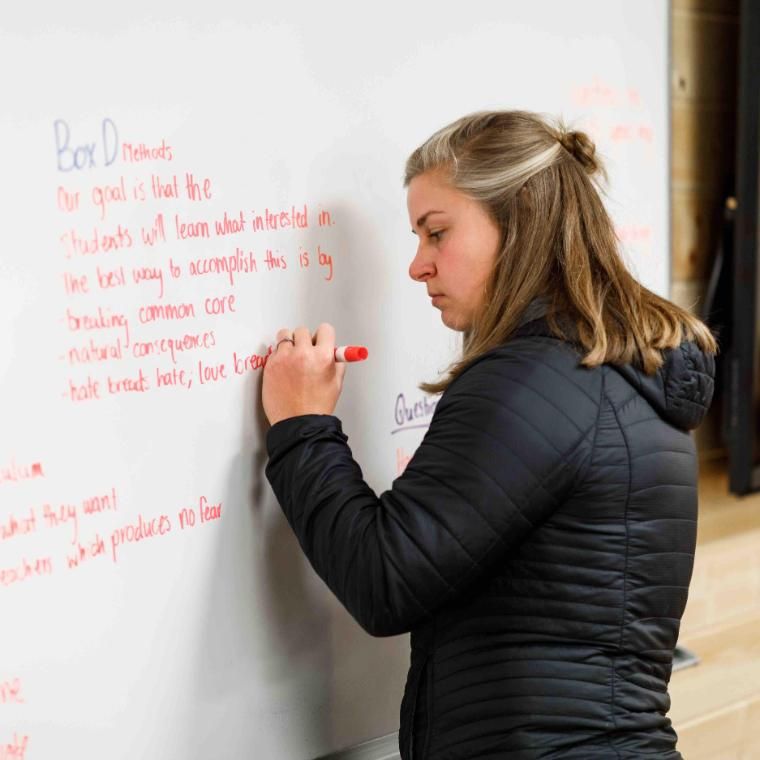 Box D Methods
Our goal is that the
students will learn what interested in.
The best way to accomplish this is by
-breaking common core
-natural consequences
-hate breads hate, love brea
Questi
ulum
what they want
eachers which produces no fear